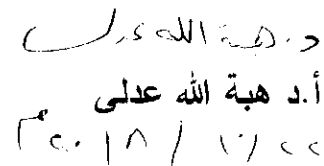 د. هبة الله عدلى
أ.د هبة الله عدلى
٢٢ / ١٠ / ٢٠١٨ م